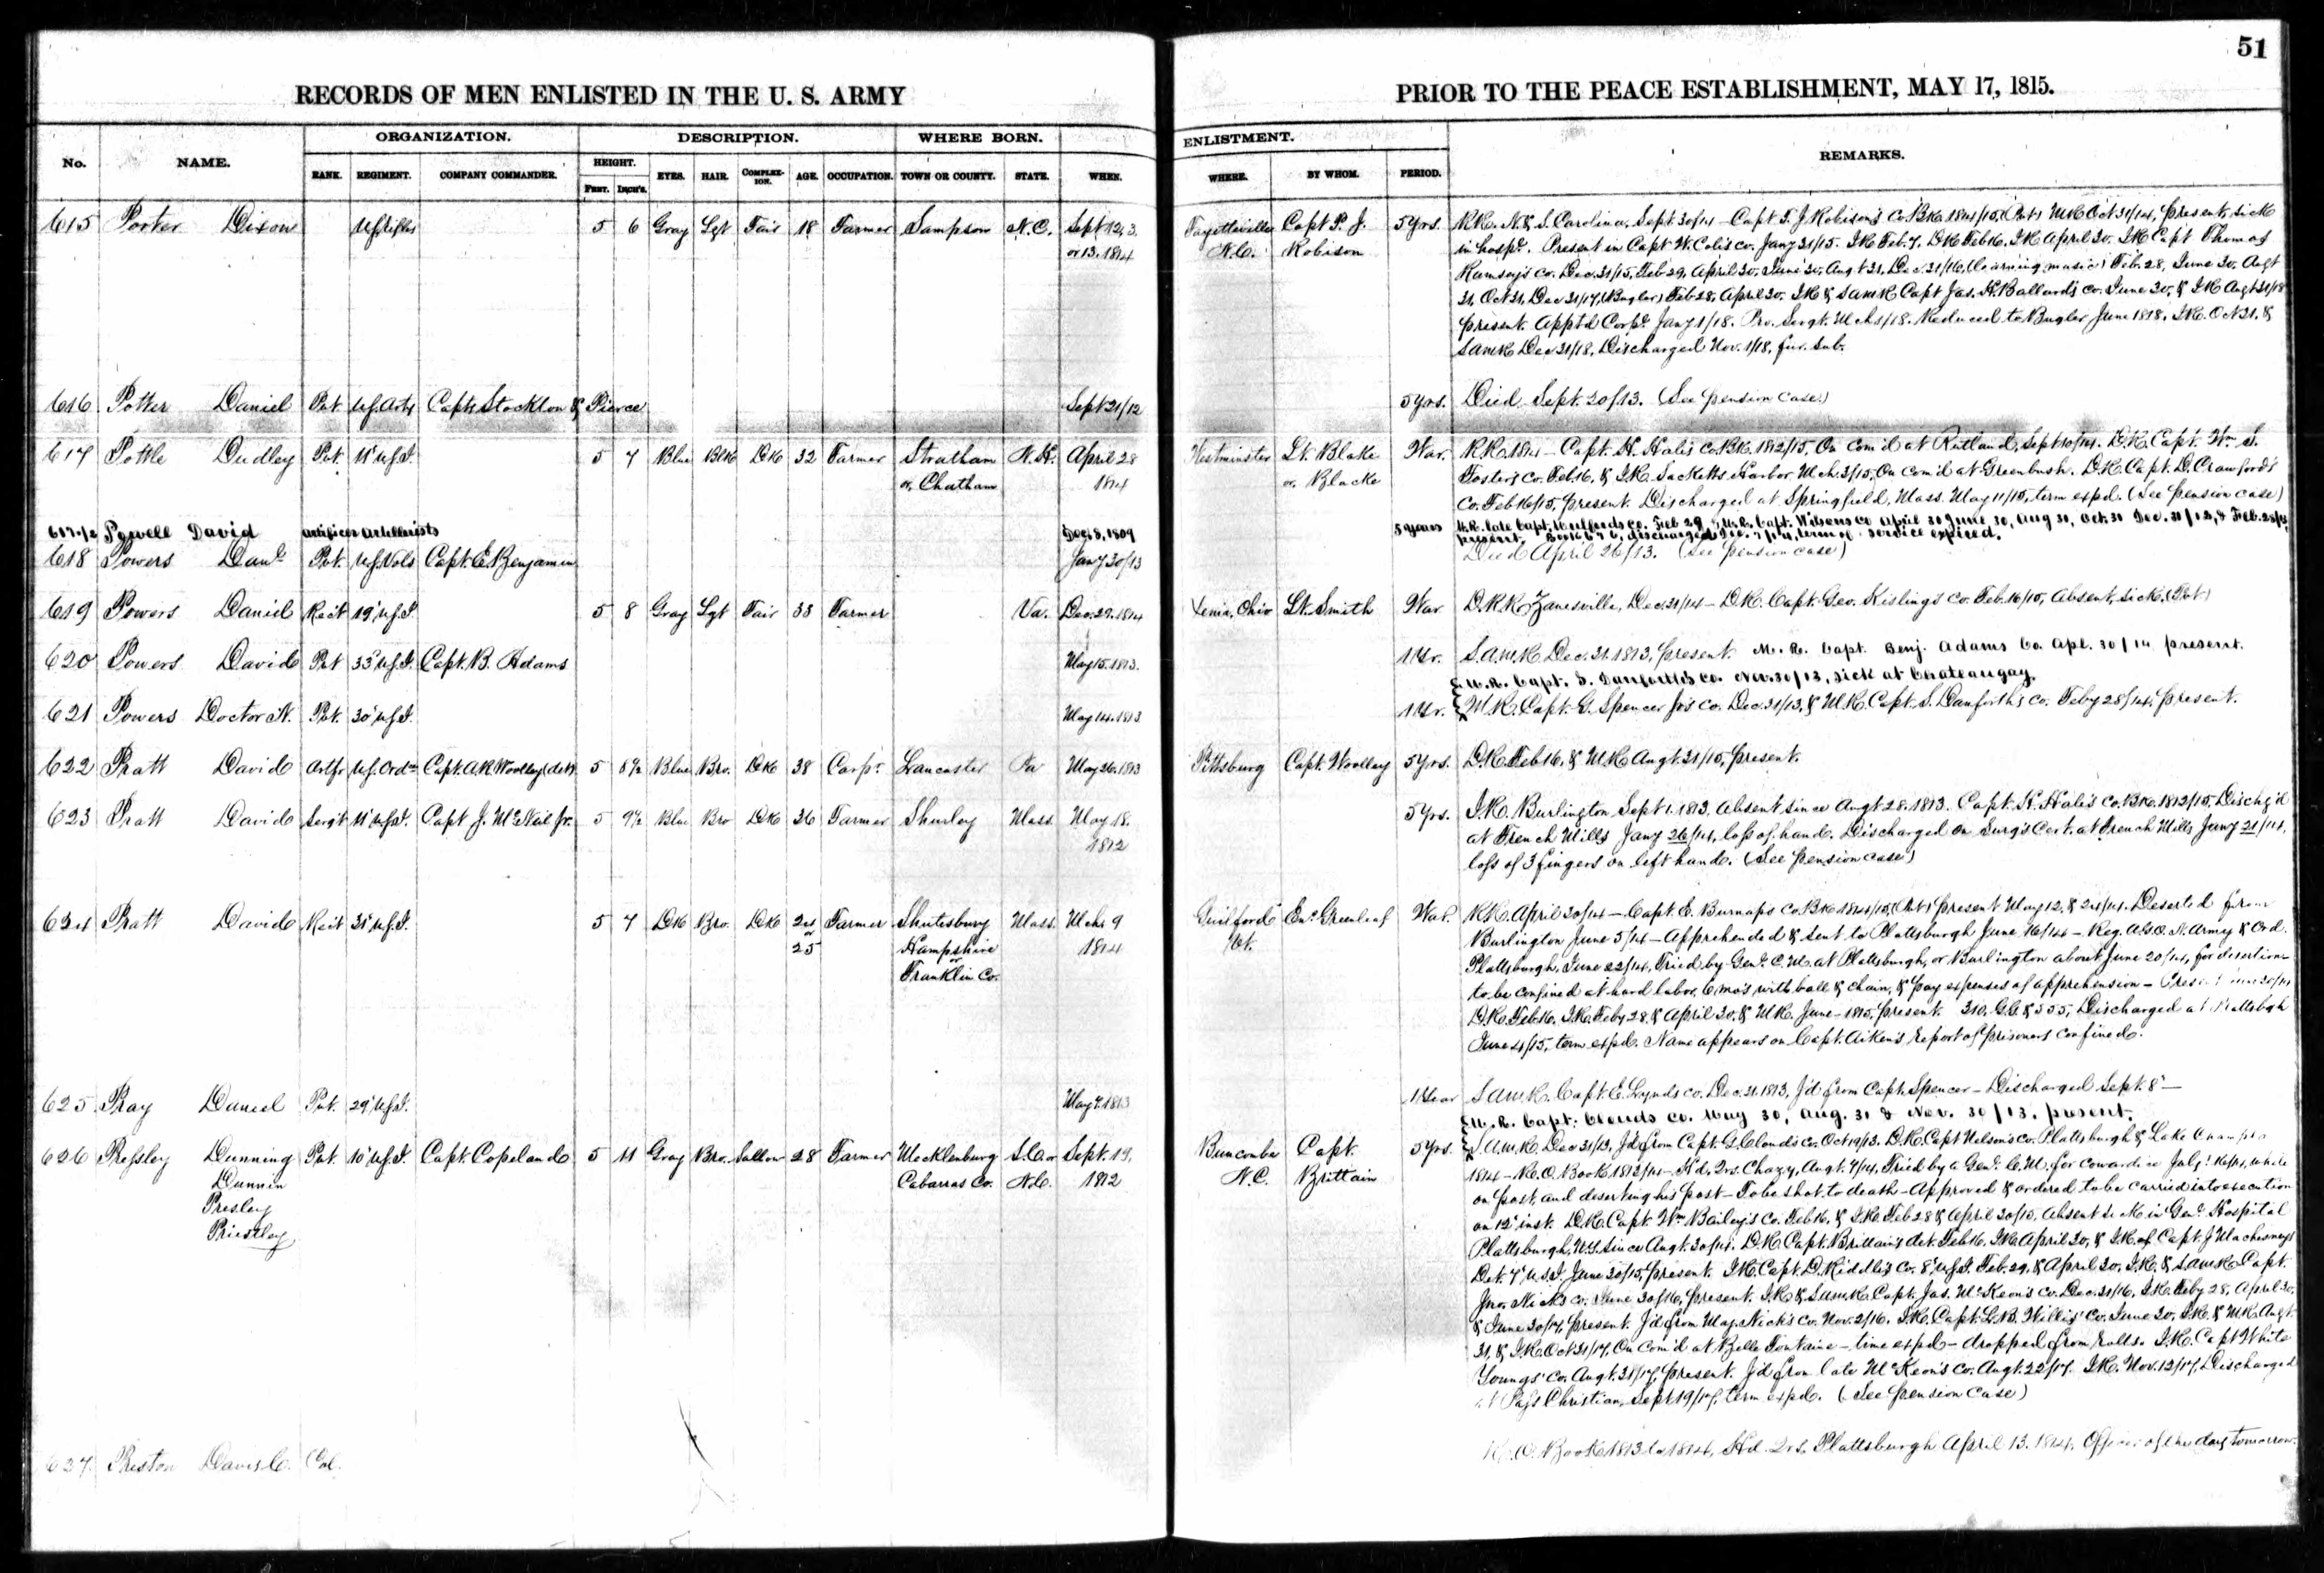 51
RECORDS OF MEN ENLISTED IN THE U. S. ARMY PRIOR TO THE PEACE ESTABLISHMENT, MAY 17, 1815.
No. NAME. ORGANIZATION. DESCRIPTION. WHERE BORN. ENLISTMENT. REMARKS.
RANK. REGIMENT. COMPANY COMMANDER. HEIGHT. FEET. INCH'S. EYES. HAIR. COMPLEXION. AGE. OCCUPATION. TOWN OR COUNTY. STATE. WHEN. WHERE. BY WHOM. PERIOD.
615 Porter Dixon U.S. Rifles 5 6 Gray Lgt Fair 18 Farmer Sampson N.C. Sept 12, 3 Fayetteville Capt P. J. 5 Yrs. R.R. N. & S. Carolina, Sept. 30/14 - Capt. T. J. Robison's Co. Bk. 1814/15, (Pvt) M.R. Oct 31/14, present, sick
or 13, 1814 N.C. Robison in hosp'l. Present in Capt W. Cole's co. Jany 31/15. I.R. Feb. 7, D.R. Feb 16, I.R. April 30. I.R. Capt Thomas
Ramsey's co. Dec. 31/15, Feb 29, April 30, June 30, Augt 31, Dec. 31/16, (learning music) Feb. 28, June 30, Augt
31, Oct 31, Dec 31/17, (Bugler) Feb 28, April 30. I.R. & S.A.M.R. Capt Jas. H. Ballard's co. June 30, & I.R. Augt 31/18
present. Appt'd Corp'l Jany 1/18. Pro. Sergt. Mch 1/18. Reduced to Bugler June 1818. I.R. Oct 31, &
S.A.M.R. Dec 31/18, Discharged Nov. 1/18, fur. Sub.
616 Potter Daniel Pvt U.S. Arty Capts Stockton & Pierce Sept 21/12 5 Yrs. Died Sept. 20/13. (See pension case)
617 Pottle Dudley Pvt. 11" U.S.I. 5 7 Blue Blk Dk 32 Farmer Stratham N.H. April 28 Westminster Lt. Blake War. R.R. 1814 - Capt. H. Hale's Co. Bk. 1812/15, On Com'd at Rutland, Sept 10/14. D.R. Capt. Wm. S.
or Chatham 1814 or Blacke Foster's Co. Feb 16, & I.R. Sacketts Harbor Mch. 3/15, On Com'd at Greenbush. D.R. Capt. D. Crawford's
Co. Feb 16/15, present. Discharged at Springfield, Mass. May 11/15, term expd. (See pension case)
617-1/2 Powell David Artificer Artillerists Dec. 8, 1809 5 years M.R. late Capt. Co. Feb 29, M.R. Capt. Wilsons Co April 30 June 30, Aug 31, Oct. 31 Dec. 31/12, & Feb. 28/
present. Book discharged Dec. term of service expired.
618 Powers Danl Pvt. U.S. Vols Capt. E. Benjamin Jany 30/13 Died April 26/13. (See pension case)
619 Powers Daniel Rect 19" U.S.I. 5 8 Gray Lgt Fair 33 Farmer Va. Dec. 29. 1814 Xenia, Ohio Lt. Smith War D.R.R. Zanesville, Dec. 31/14 - D.R. Capt. Geo. Kisling's Co. Feb. 16/15, Absent, sick, (Pvt)
620 Powers David Pvt 33" U.S.I. Capt. B. Adams May 15. 1813. 1 Yr. S.A.M.R. Dec. 31. 1813, present. M. R. Capt. Benj. Adams Co. Apl. 30/14 present.
M.R. Capt. S. Danforth's Co. Nov. 30/13, sick at Chateaugay.
621 Powers Doctor N. Pvt. 30" U.S.I. May 14. 1813 1 Yr. M.R. Capt. G. Spencer Jr's Co. Dec. 31/13, & M.R. Capt. S. Danforth's Co. Feby 28/14, present.
622 Pratt David Artfr U.S. Ord Capt. A.R. Woolley (det) 5 8½ Blue Bro. Dk 38 Carp'r Lancaster Pa May 26. 1813 Pittsburg Capt. Woolley 5 Yrs. D.R. Feb 16, & M.R. Augt. 31/15, present.
623 Pratt David Serg't 11" U.S.I. Capt J. McNeil Jr. 5 9½ Blue Bro Dk 36 Farmer Shurley Mass. May 18. 5 Yrs. I.R. Burlington Sept 1. 1813, Absent since Augt 28. 1813. Capt. H. Hale's Co. Bk. 1812/15, Dischg'd
1812 at French Mills Jany 26/14, loss of hand. Discharged on Surg's Cert. at French Mills Jany 21/14,
loss of 3 fingers on left hand. (See pension case)
624 Pratt David Rect 31" U.S.I. 5 7 Dk Bro. Dk 24 Farmer Shutesbury Mass. Mch. 9 Guilford Ens. Greenleaf War. R.R. April 30/14 - Capt. E. Burnap's Co. Bk 1814/15, (Pvt) present May 12, & 24/14. Deserted from
or 25 Hampshire 1814 Vt. Burlington June 5/14 - Apprehended & sent to Plattsburgh June 16/14 - Reg. A&O. N. Army & Ord.
or Franklin Co. Plattsburgh, June 22/14, Tried by Genl. C.M. at Plattsburgh, or Burlington about June 20/14, for desertion
to be confined at hard labor, 6 mo's with ball & chain, & pay expenses of apprehension -
D.R. Feb 16, I.R. Feby 28, & April 30, & M.R. June 1815, present. 310. G.G. & 355, Discharged at Plattsbgh
June 4/15, term expd. Name appears on Capt. Aiken's report of prisoners confined.
625 Pray Daniel Pvt. 29" U.S.I. May 7. 1813 1 Year S.A.M.R. Capt. E. Lynds co. Dec. 31. 1813, J'd from Capt. Spencer - Discharged Sept. 8" -
M. R. Capt. Clouds Co. May 30, Aug. 31 & Nov. 30/13, present.
626 Pressley Dunning Pvt. 10" U.S.I. Capt. Copeland 5 11 Gray Bro. Sallow 28 Farmer Mecklenburg S.C. or Sept. 19, Buncombe Capt. 5 Yrs. S.A.M.R. Dec 31/13, J'd from Capt. G. Cloud's co. Oct 19/13. D.R. Capt Nelson's co. Plattsburgh & Lake
Dunnin Cabarras Co. N.C. 1812 N.C. Brittain 1814 - R.O. Book 1813/14 - Hd. Qrs. Chazy, Augt. 7/14, Tried by a Genl. C.M. for cowardice July 16/14, while
Presley on post, and deserting his post - To be shot to death - Approved & ordered to be carried into execution
Priestley on 12" inst. D.R. Capt. Wm. Bailey's Co. Feb 16, & I.R. Feb 28 & April 30/15, Absent sick in Genl. Hospital
Plattsburgh, N.Y. since Augt. 30/14. D.R. Capt. Brittain's det. Feb 16. I.R. April 30, & I.R. of Capt. J. Machesney's
Det. 7" U.S.I. June 30/15, present. I.R. Capt. D. Riddle's Co. 8" U.S.I. Feb. 29, & April 30. I.R. & S.A.M.R. Capt.
Jno. Nicks co. June 30/16, present. I.R. & S.A.M.R. Capt. Jas. McKeon's co. Dec. 31/16, I.R. Feby 28, April 30,
& June 30/17, present. J'd from Maj. Nick's Co. Nov. 2/16. I.R. Capt. L.B. Willis' Co. June 30, I.R. & M.R. Augt.
31, & I.R. Oct 31/17, On Com'd at Belle Fontaine - time expd - dropped from rolls. I.R. Capt White
Youngs' Co. Augt. 31/17, present. J'd from late McKeon's Co. Augt. 22/17. I.R. Nov. 12/17, Discharged
at Pass Christian, Sept 19/17, term expd. (See pension case)
627. Preston Davis C. Col. R.O. Book 1813 to 1814, Hd. Qrs. Plattsburgh April 13. 1814, Officer of the day tomorrow.